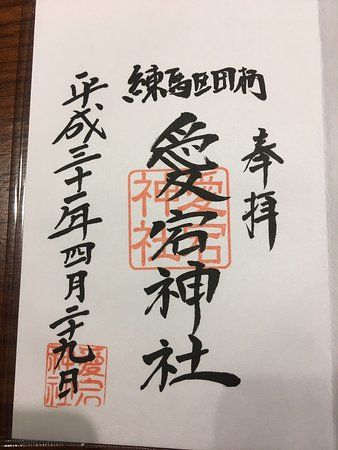 奉拝
練馬区田柄
愛宕神社
愛宕
神社
平成三十一年四月二十九日
愛宕
神社